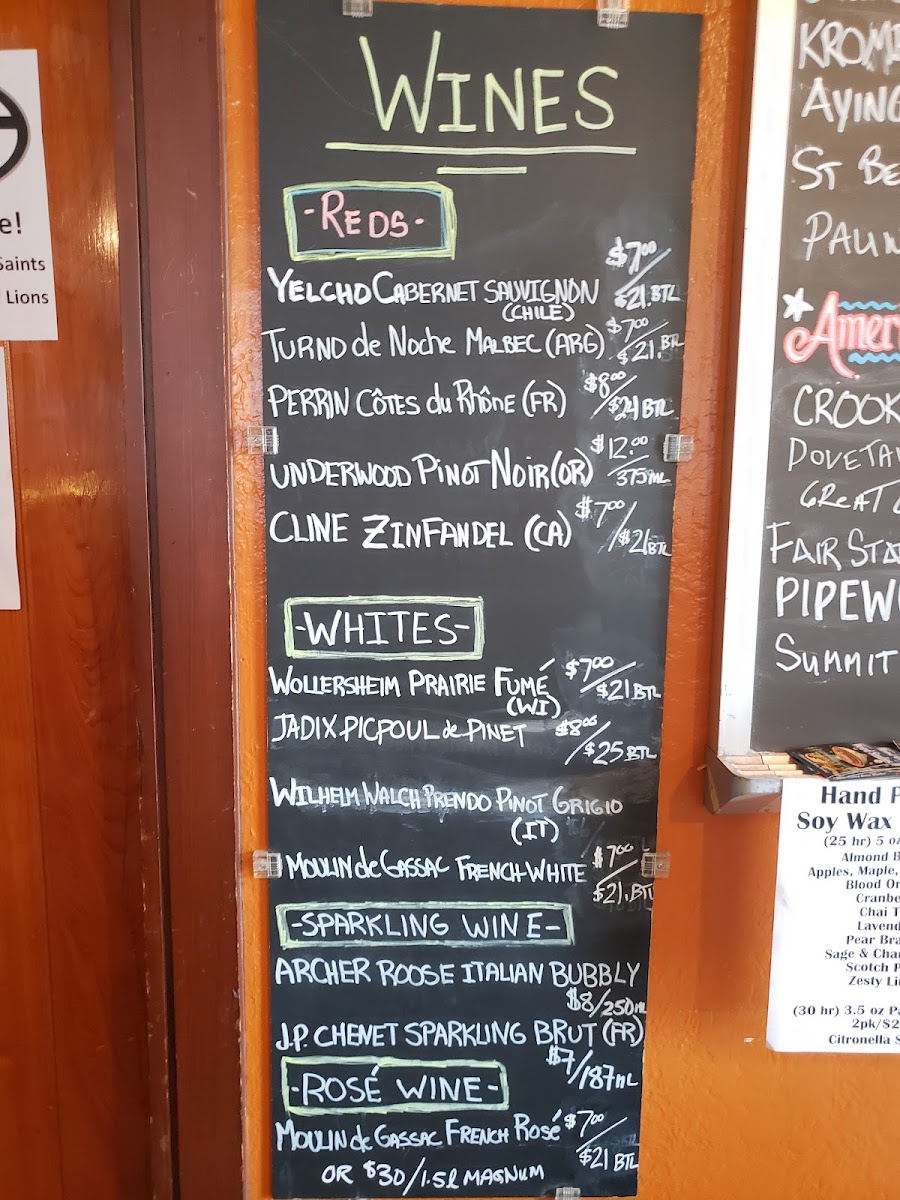 WINES
-REDS-
YELCHO CABERNET SAUVIGNON $7.00/$21.BTL
(CHILE)
TURNO de Noche MALBEC (ARG) $7.00/$21.BTL
PERRIN CÔTES du Rhône (FR) $8.00/$24 BTL
UNDERWOOD PINOT NOIR (OR) $12.00/375mL
CLINE ZINFANDEL (CA) $7.00/$21 BTL
-WHITES-
WOLLERSHEIM PRAIRIE FUMÉ $7.00/$21 BTL
(WI)
JADIX PICPOUL de PINET $8.00/$25 BTL
WILHELM WALCH PRENDO PINOT GRIGIO
(IT)
MOULIN de GASSAC FRENCH WHITE $7.00/$21.BTL
-SPARKLING WINE-
ARCHER ROOSE ITALIAN BUBBLY
$8/250mL
J.P. CHENET SPARKLING BRUT (FR)
$7/187mL
-ROSÉ WINE-
MOULIN de GASSAC FRENCH Rosé $7.00/$21 BTL
OR $30/1.5l MAGNUM
e!
Saints
Lions
AYING
ST BE
PAUN
Amer
CROOK
DOVETA
GREAT
FAIR STA
PIPEW
SUMMIT
Hand P
Soy Wax
(25 hr) 5 o
Almond B
Apples, Maple,
Blood Or
Cranbe
Chai T
Lavend
Pear Bra
Sage & Cha
Scotch P
Zesty Li
(30 hr) 3.5 oz Pa
2pk/$2
Citronella S